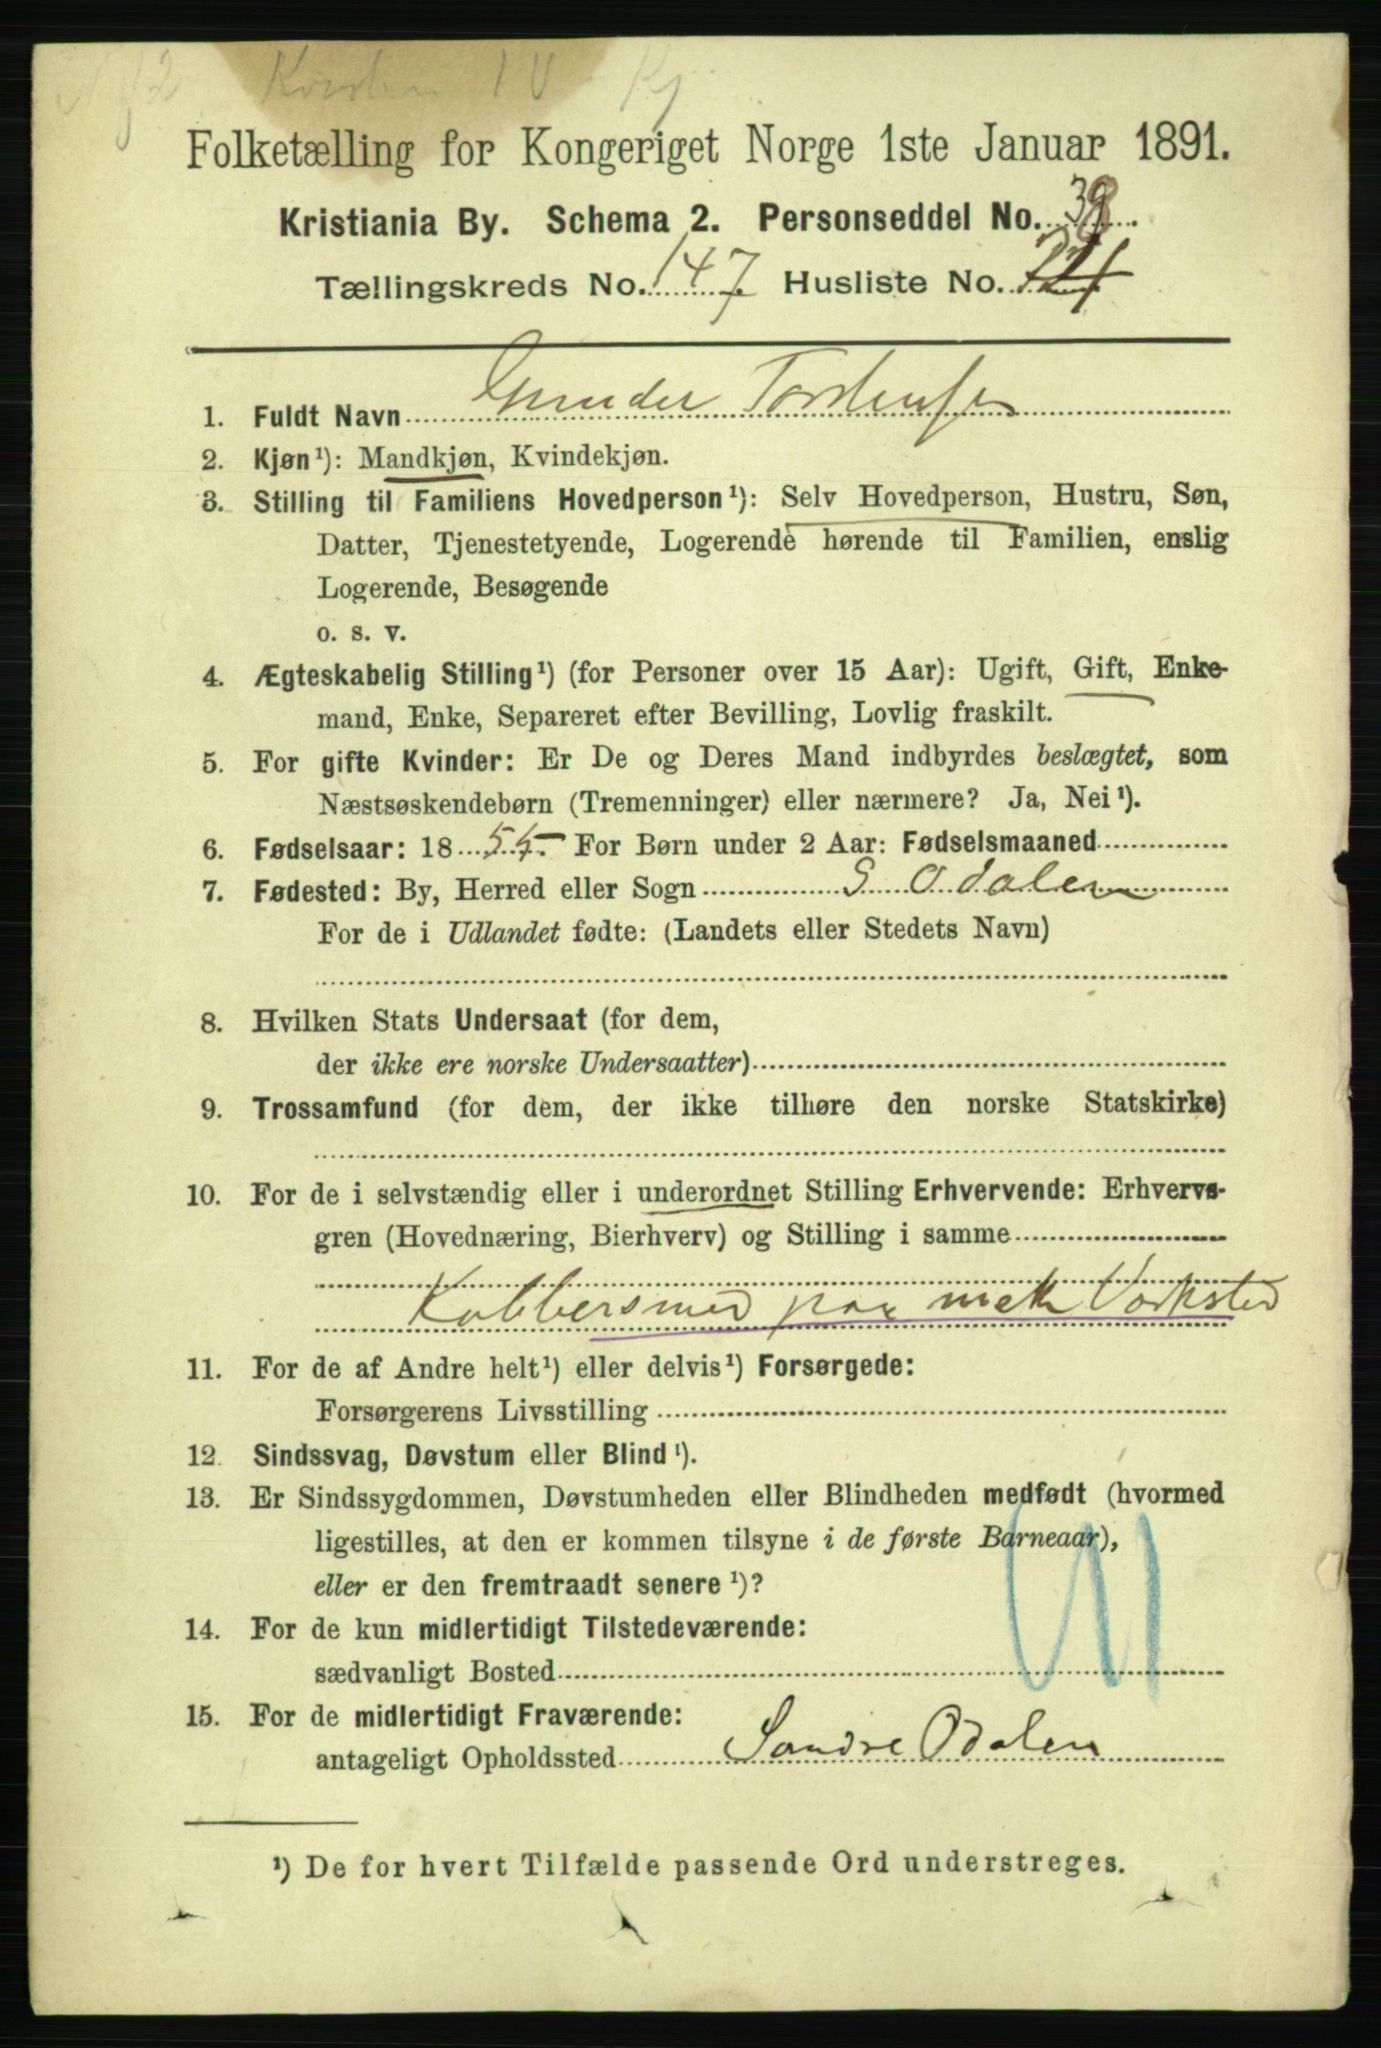 Folketælling for Kongeriget Norge 1ste Januar 1891.
Kristiania By. Schema 2. Personseddel No.
Tællingskreds No. 147 Husliste No.
1. Fuldt Navn Gunder Torstensen
2. Kjøn¹): Mandkjøn, Kvindekjøn.
3. Stilling til Familiens Hovedperson¹): Selv Hovedperson, Hustru, Søn,
Datter, Tjenestetyende, Logerende hørende til Familien, enslig
Logerende, Besøgende
o. s. v.
4. Ægteskabelig Stilling¹) (for Personer over 15 Aar): Ugift, Gift, Enke-
mand, Enke, Separeret efter Bevilling, Lovlig fraskilt.
5. For gifte Kvinder: Er De og Deres Mand indbyrdes beslægtet, som
Næstsøskendebørn (Tremenninger) eller nærmere? Ja, Nei¹).
6. Fødselsaar: 18 55. For Børn under 2 Aar: Fødselsmaaned
7. Fødested: By, Herred eller Sogn S Odalen
For de i Udlandet fødte: (Landets eller Stedets Navn)
8. Hvilken Stats Undersaat (for dem,
der ikke ere norske Undersaatter)
9. Trossamfund (for dem, der ikke tilhøre den norske Statskirke)
10. For de i selvstændig eller i underordnet Stilling Erhvervende: Erhvervs-
gren (Hovednæring, Bierhverv) og Stilling i samme
Kobbersmed paa mek Værksted
11. For de af Andre helt¹) eller delvis¹) Forsørgede:
Forsørgerens Livsstilling
12. Sindssvag, Døvstum eller Blind¹).
13. Er Sindssygdommen, Døvstumheden eller Blindheden medfødt (hvormed
ligestilles, at den er kommen tilsyne i de første Barneaar),
eller er den fremtraadt senere¹)?
14. For de kun midlertidigt Tilstedeværende:
sædvanligt Bosted
15. For de midlertidigt Fraværende:
antageligt Opholdssted Søndre Odalen
¹) De for hvert Tilfælde passende Ord understreges.